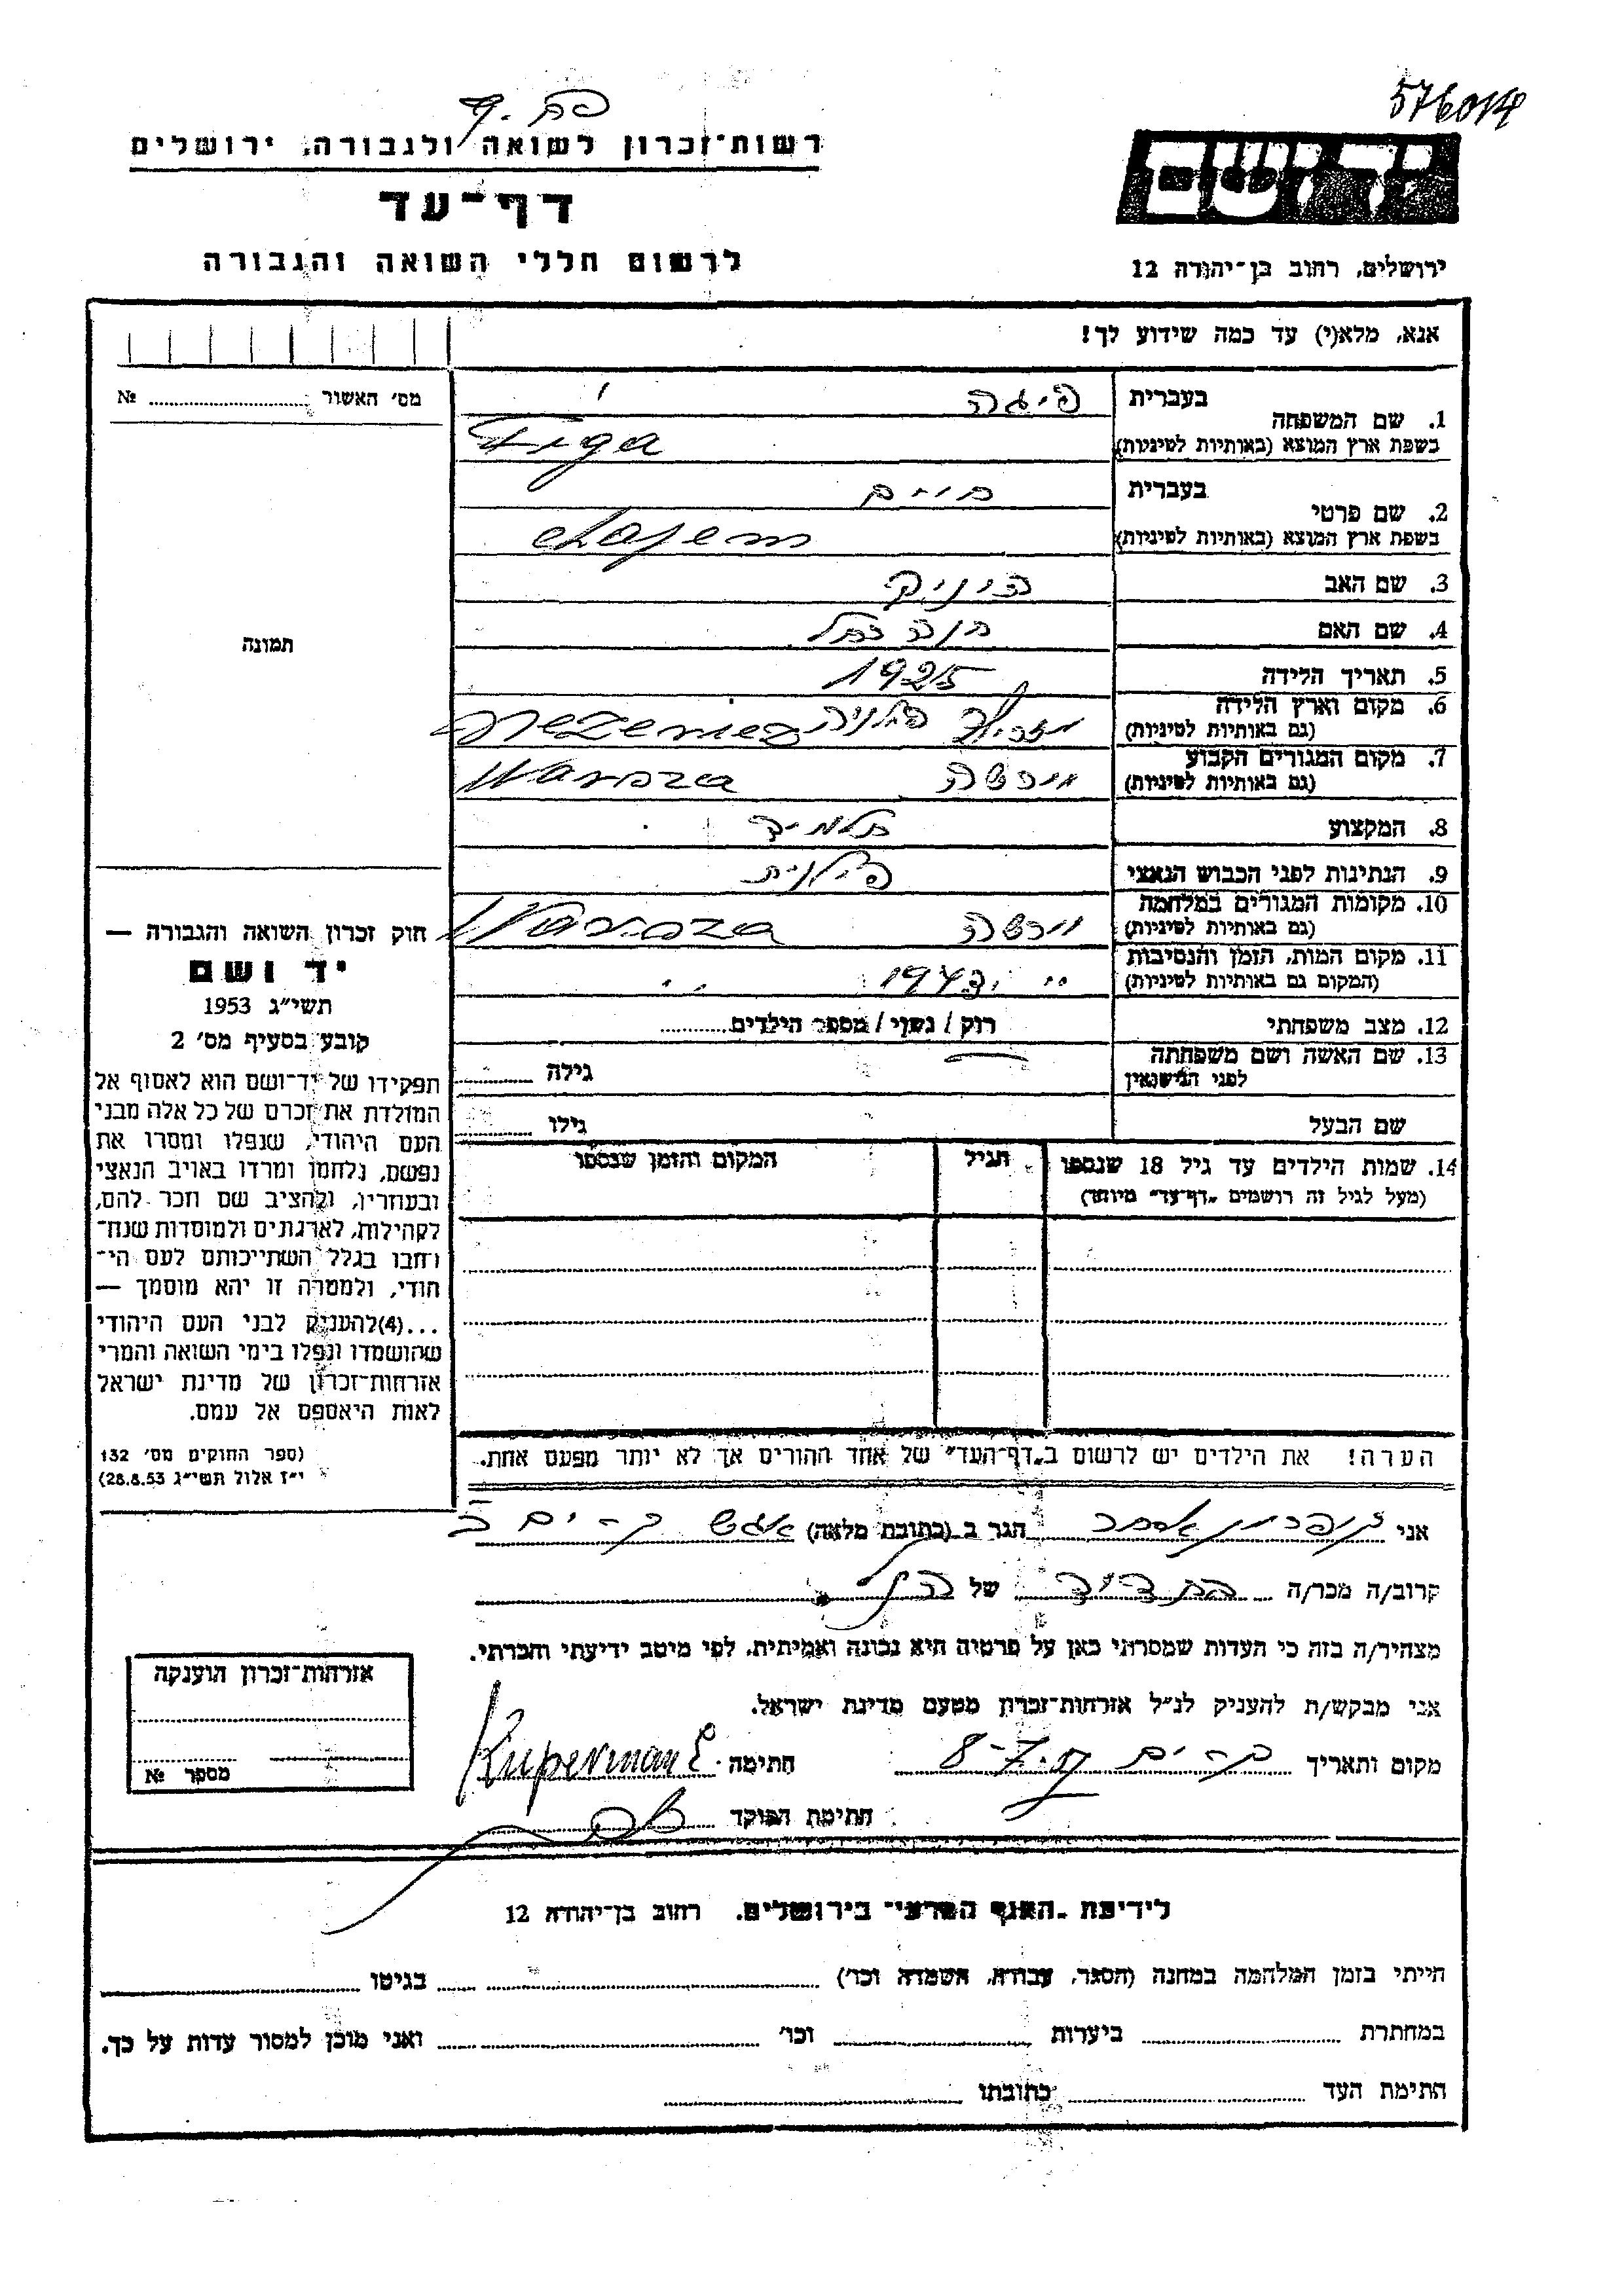 576014
פת. ק
רשות־זכרון לשואה ולגבורה, ירושלים
דף־עד
לרשום חללי השואה והגבורה
יד ושם
ירושלים, רחוב בן־יהודה 12
אנא, מלא(י) עד כמה שידוע לך!
מס׳ האשור № 
1. שם המשפחה
בעברית פיגה
בשפת ארץ המוצא (באותיות לטיניות) Figa
2. שם פרטי
בעברית חיים
בשפת ארץ המוצא (באותיות לטיניות) Chajem
3. שם האב
4. שם האם חנה רחל
5. תאריך הלידה 1925
6. מקום וארץ הלידה פולניה
(גם באותיות לטיניות)
7. מקום המגורים הקבוע ורשה Warsza
(גם באותיות לטיניות)
8. המקצוע תלמיד
9. הנתינות לפני הכבוש הנאצי פולנית
10. מקומות המגורים במלחמה ורשה Warsza
(גם באותיות לטיניות)
11. מקום המות, הזמן והנסיבות ״ 1943
(המקום גם באותיות לטיניות)
12. מצב משפחתי רוק / נשוי / מספר הילדים
13. שם האשה ושם משפחתה גילה
לפני הנישואין
שם הבעל גילו
14. שמות הילדים עד גיל 18 שנספו הגיל המקום והזמן שנספו
(מעל לגיל זה רושמים „דף־עד״ מיוחד)
הערה! את הילדים יש לרשום ב„דף־העד״ של אחד ההורים אך לא יותר מפעם אחת.
תמונה
חוק זכרון השואה והגבורה —
יד ושם
תשי״ג 1953
קובע בסעיף מס׳ 2
תפקידו של יד־ושם הוא לאסוף אל
המולדת את זכרם של כל אלה מבני
העם היהודי, שנפלו ומסרו את
נפשם, נלחמו ומרדו באויב הנאצי
ובעוזריו, ולהציב שם וזכר להם,
לקהילות, לארגונים ולמוסדות שנח־
רחבו בגלל השתייכותם לעם הי־
הודי, ולמטרה זו יהא מוסמך —
...(4)להעניק לבני העם היהודי
שהושמדו ונפלו בימי השואה והמרי
אזרחות־זכרון של מדינת ישראל
לאות היאספם אל עמם.
(ספר החוקים מס׳ 132
י״ז אלול תשי״ג 28.8.53)
אני קופרמן אסתר הגר ב (כתובת מלאה) בת־ים
קרוב/ה מכר/ה בת דוד של הנ״ל
מצהיר/ה בזה כי העדות שמסרתי כאן על פרטיה היא נכונה ואמיתית, לפי מיטב ידיעתי והכרתי.
אני מבקש/ת להעניק לנ״ל אזרחות־זכרון מטעם מדינת ישראל.
מקום ותאריך בת־ים 8-7 חתימה Kuperman E
חתימת הפוקד
אזרחות־זכרון הוענקה
מספר №
לידיעת „האגף המדעי״ בירושלים, רחוב בן־יהודה 12
הייתי בזמן המלחמה במחנה (הסגר, עבודה, השמדה וכו׳) בגיטו
במחתרת ביערות וכו׳ ואני מוכן למסור עדות על כך.
חתימת העד כתובתו